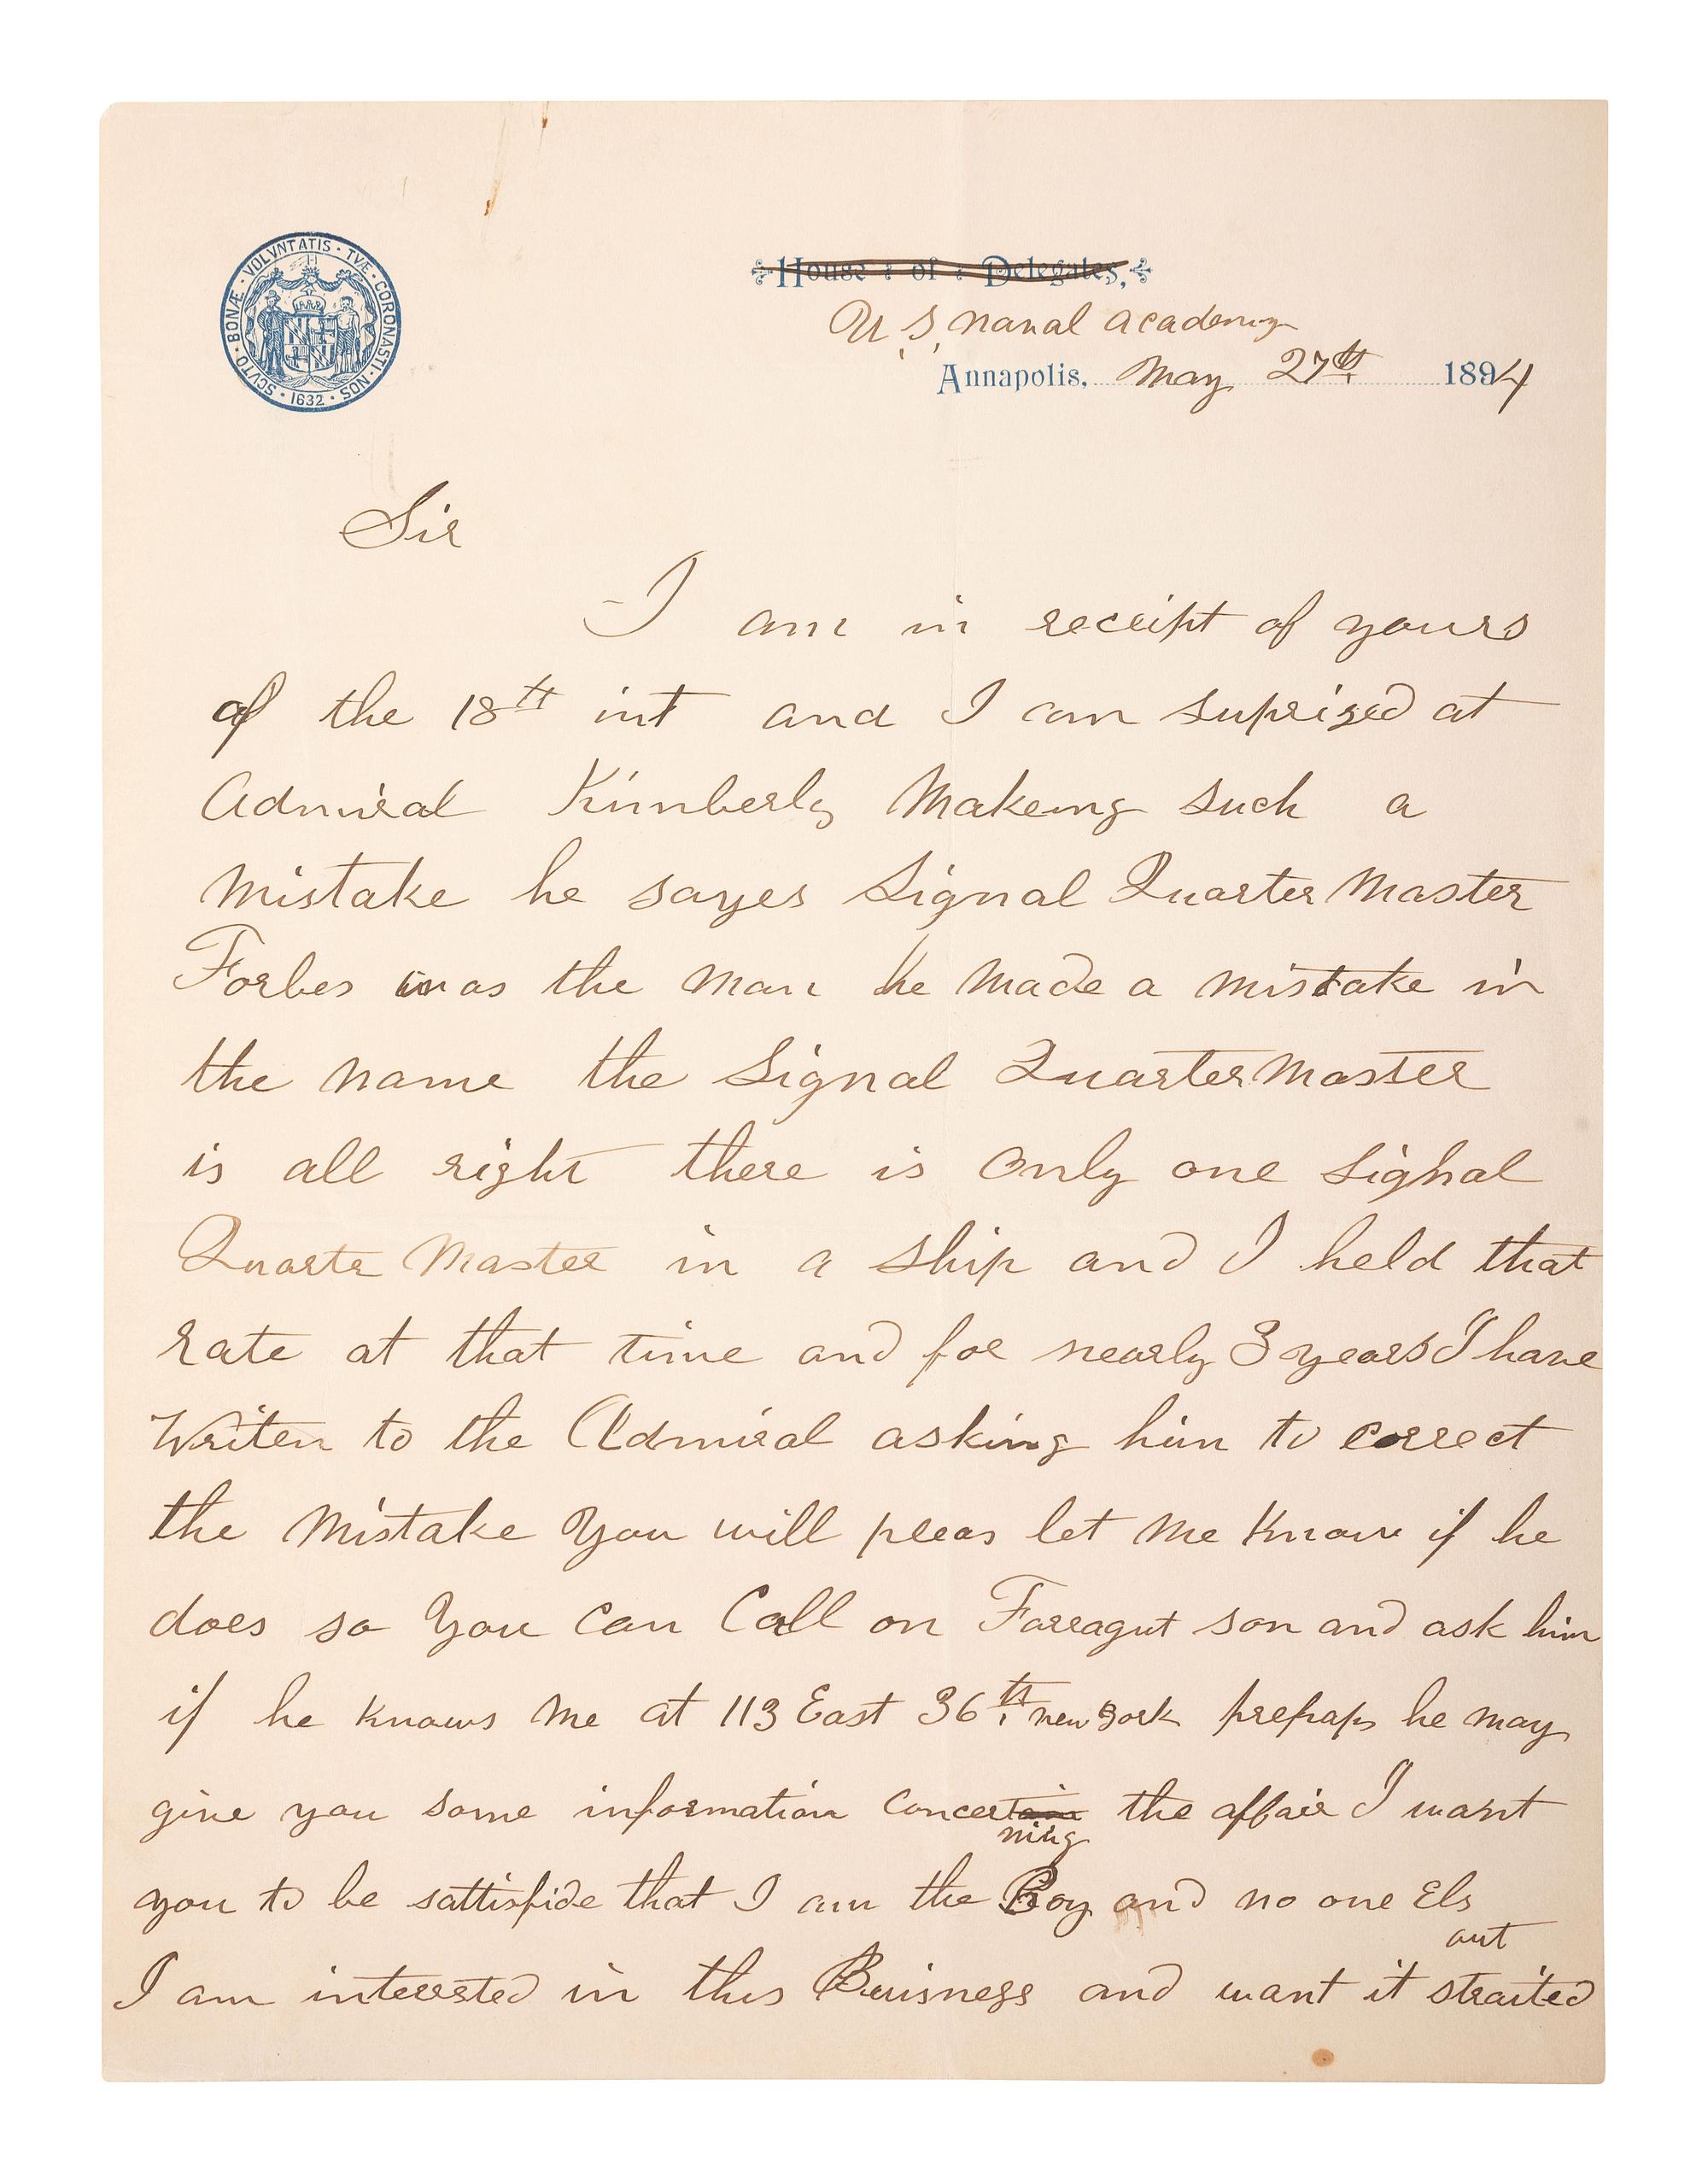 SCVTO · BONÆ · VOLVNTATIS · TVÆ · CORONASTI · NOS · 1632 ·
House : of : Delegates,
U. S, Naval Academy
Annapolis, May 27th 1894
Sir
I am in receipt of yours
of the 18th int and I am suprised at
Admiral Kimberly Makeing such a
Mistake he sayes Signal Quarter Master
Forbes was the Man he Made a Mistake in
the Name the Signal Quarter Master
is all right there is Only one Signal
Quarte Master in a Ship and I held that
Rate at that time and for nearly 3 years I have
Writen to the Admiral asking him to correct
the Mistake You will pleas let Me Know if he
does so You Can Call on Farragut son and ask him
if he Knows Me at 113 East 36th New York prehaps he may
give you some information Concertain the affair I want
ning
you to be sattisfide that I am the Boy and no one Els
I am interested in this Buisness and want it straited
out